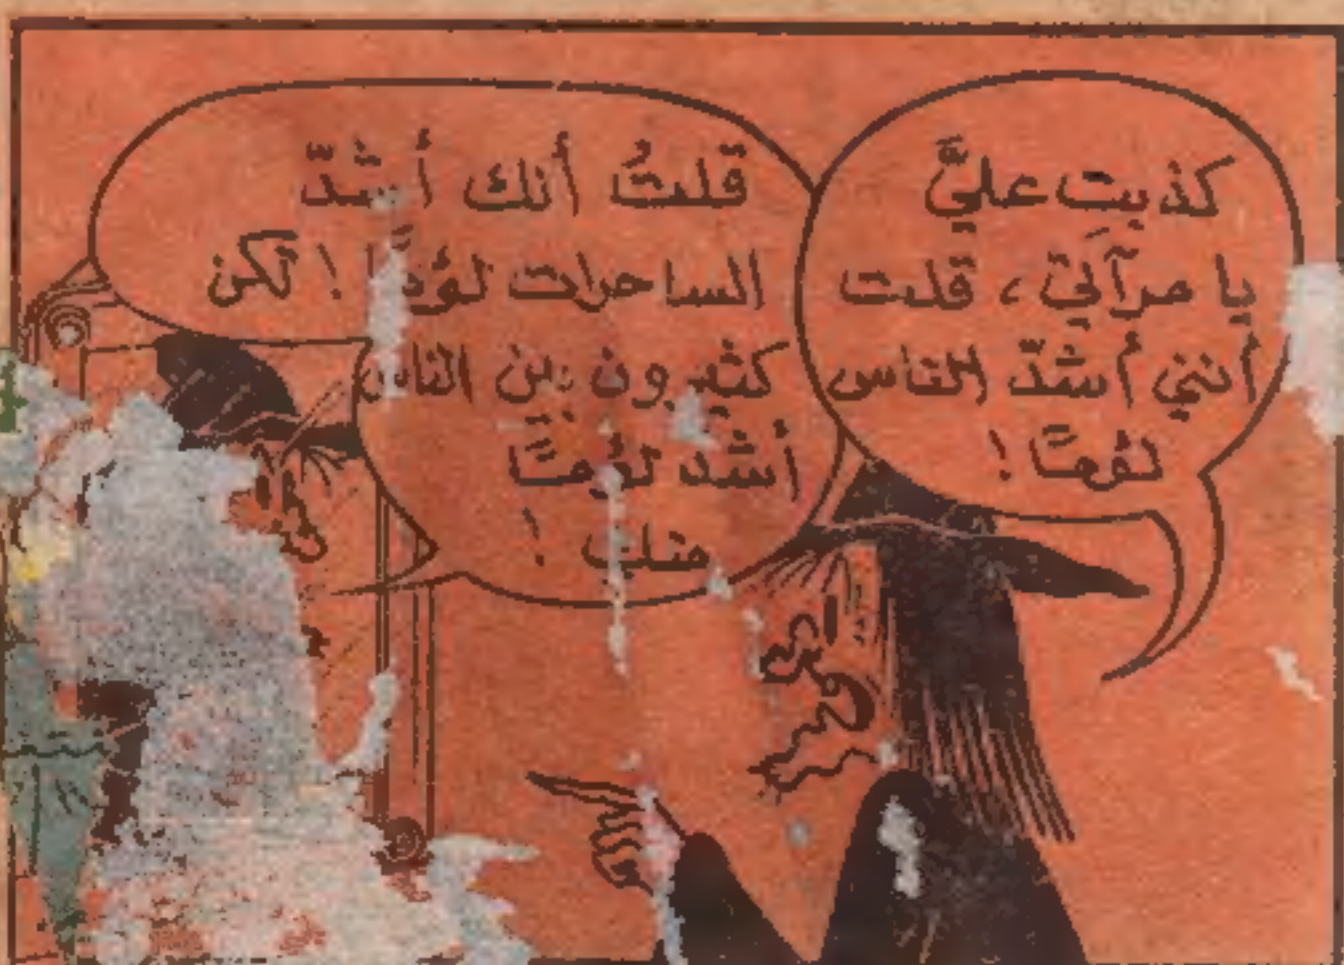 كذبتِ عليَّ
يا مرآتي، قلت
أنني أشدّ الناس
لؤمًا !
قلتُ أنك أشدّ
الساحرات لؤمًا ! لكن
كثيرون بين الناس
أشد لؤمًا
منك !